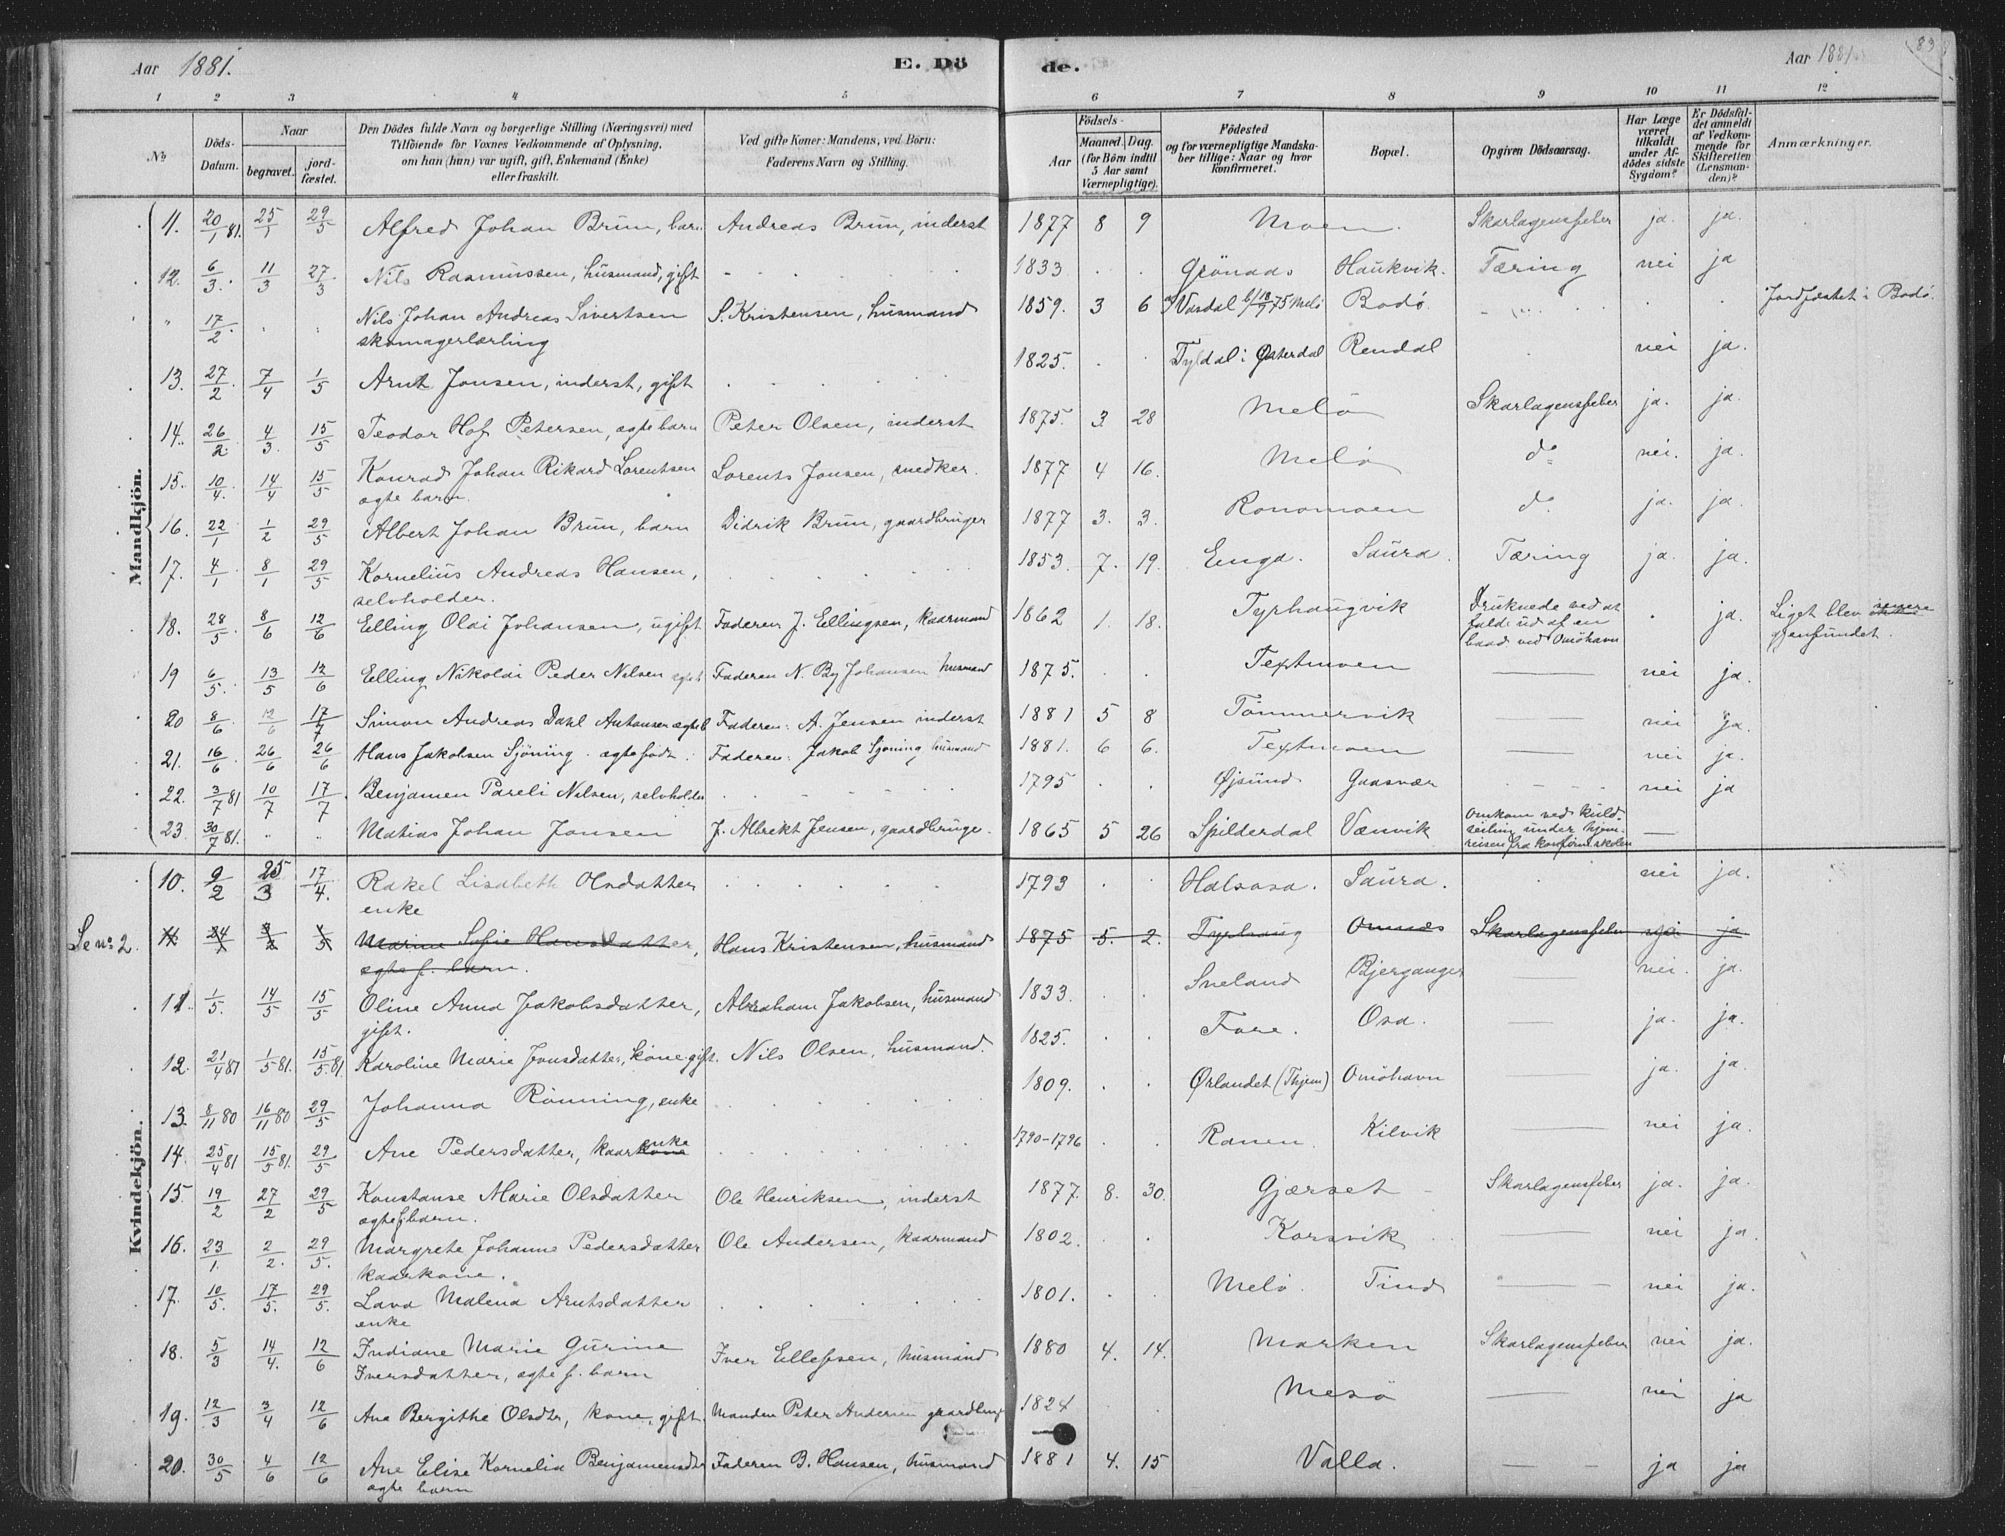 Aar 1881. E. Dö
de. Aar 1881. 83
1 2 3 4 5 6 7 8 9 10 11 12
No. Döds-Datum. Naar begravet. jordfæstet. Den Dödes fulde Navn og borgerlige Stilling (Næringsvei) med Tilföiende for Voxnes Vedkommende af Oplysning, om han (hun) var ugift, gift, Enkemand (Enke) eller fraskilt. Ved gifte Koner: Mandens, ved Börn: Faderens Navn og Stilling. Födsels- Aar Maaned. Dag. (for Börn indtil 5 Aar samt Værnepligtige). Födested og for værnepligtige Mandskaber tillige: Naar og hvor konfirmeret. Bopæl. Opgiven Dödsaarsag. Har Læge været tilkaldt under Afdödes sidste Sygdom? Er Dödsfaldet anmeldt af Vedkommende for Skifteretten (Lensmanden)? Anmærkninger.
Mandkjön.
11. 20/1 81. 25/1 29/5 Alfred Johan Brun, barn Andreas Brun, inderst 1877 8 9 Moen. Skarlagensfeber ja. ja.
12. 6/3. 11/3 27/3 Nils Rasmussen, husmand, gift 1833 Grönaas Haukvik. Tæring nei ja
" 17/2. Nils Johan Andreas Sivertsen S. Kristensen, husmand 1859. 3 6 Vasdal 18/9 75 Melö Bodö. Jordfæstet i Bodö.
skomagerlærling
13. 27/2 7/4 1/5 Arnt Jonsen, inderst, gift 1825. Tyldal i Østerdal Rendal nei ja.
14. 26/2 4/3. 15/5 Teodor Hof Petersen, ægte barn Peter Olsen, inderst 1875. 3 28 Melö Skarlagensfeber ja. ja.
15. 10/4. 14/4 15/5 Konrad Johan Rikard Lorentsen Lorents Jonsen, snedker. 1877 4 16. Melö do nei. ja.
ægte barn.
16. 22/1 1/2 29/5 Albert Johan Brun, barn Didrik Brun, gaardbruger 1877 3. 3. Ronomoen do ja. ja.
17. 4/1 8/1 29/5 Kornelius Andreas Hansen, 1853. 7. 19. Enga. Saura. Tæring ja. ja.
selvholder.
18. 28/5 8/6 12/6 Elling Olai Johansen, ugift Faderen J. Ellingsen, kaarmand 1862 1. 18. Tyrhaugvik Druknede ved at falde ud af en baad ved Omöhavn ja. Liget blev senere gjenfundet.
19 6/5. 13/5 12/6 Elling Nikolai Peder Nilsen ægte f. Faderen N. By Johansen husmand 1875. Textmoen nei ja.
20 8/6 12/6 17/7 Simon Andreas Dahl Antonsen ægte b. Faderen: A. Jensen inderst 1881 5 8 Tömmervik nei ja.
21. 16/6 26/6 26/6 Hans Jakobsen Sjöning. ægte född. Faderen: Jakob Sjöning, husmand 1881. 6 6. Textmoen nei ja.
22. 3/7 81 10/7 17/7. Benjamen Pareli Nilsen, selvholder 1795 Øjsund Gaasvær nei ja
23. 30/7 81. Matias Johan Jonsen J. Albrekt Jensen, gaardbruge. 1865 5 26 Spilderdal Vænvik Omkom ved kuldseiling under hjemreisen fra konform.skolen
Kvindekjön.
10. 9/2 25/3 17/4. Rakel Lisabeth Olsdatter 1793 Halsosa. Saura. nei ja.
enke
Se no 2. 11 24/1 3/2 1/5 Marine Sofie Hansdatter, Hans Kristensen, husmand 1875 5. 2. Tyrhaug Omnæs Skarlagensfeber nei ja
ægte f. barn.
11. 1/5. 14/5 15/5 Oline Anna Jakobsdatter, Abraham Jakobsen, husmand 1833. Sneland Bjerganger nei. ja.
gift.
12. 21/4 81 1/5 81. 15/5 81. Karoline Marie Jonsdatter, kone, gift. Nils Olsen, husmand. 1825. Fore. Osa. ja. ja.
13. 8/11 80 16/11 80 29/5 Johanna Rönning, enke 1809. Ørlandet (Thjem) Omöhavn ja. ja.
14. 25/4 81 15/5 81. 29/5 Ane Pedersdatter, kaarkone enke 1790-1796 Ranen. Kilvik nei ja.
15. 19/2 27/2 29/5 Konstanse Marie Olsdatter Ole Henriksen, inderst 1877. 8. 30. Gjærset Skarlagensfeber ja. ja.
ægte f. barn.
16. 23/1. 2/2. 29/5. Margrete Johanne Pedersdatter Ole Andersen, kaarmand 1802. Korsvik nei ja.
kaarkone.
17. 10/5. 17/5. 29/5. Lava Malena Arntsdatter 1801. Melö. Tind nei ja.
enke
18. 5/3 14/4. 12/6 Indiane Marie Gurine Iver Ellefsen, husmand 1880 4. 14. Marken Skarlagensfeber nei ja.
Iversdatter, ægte f. barn
19. 12/3 3/4 12/6 Ane Bergithe Olsdtr, kone, gift. Manden Peter Andersen gaardbruge 1824 Mesö nei ja
20. 30/5 4/6 12/6 Ane Elise Kornelia Benjamensdtr Faderen B. Hansen, husmand 1881 4. 15 Valla. ja ja
ægte barn